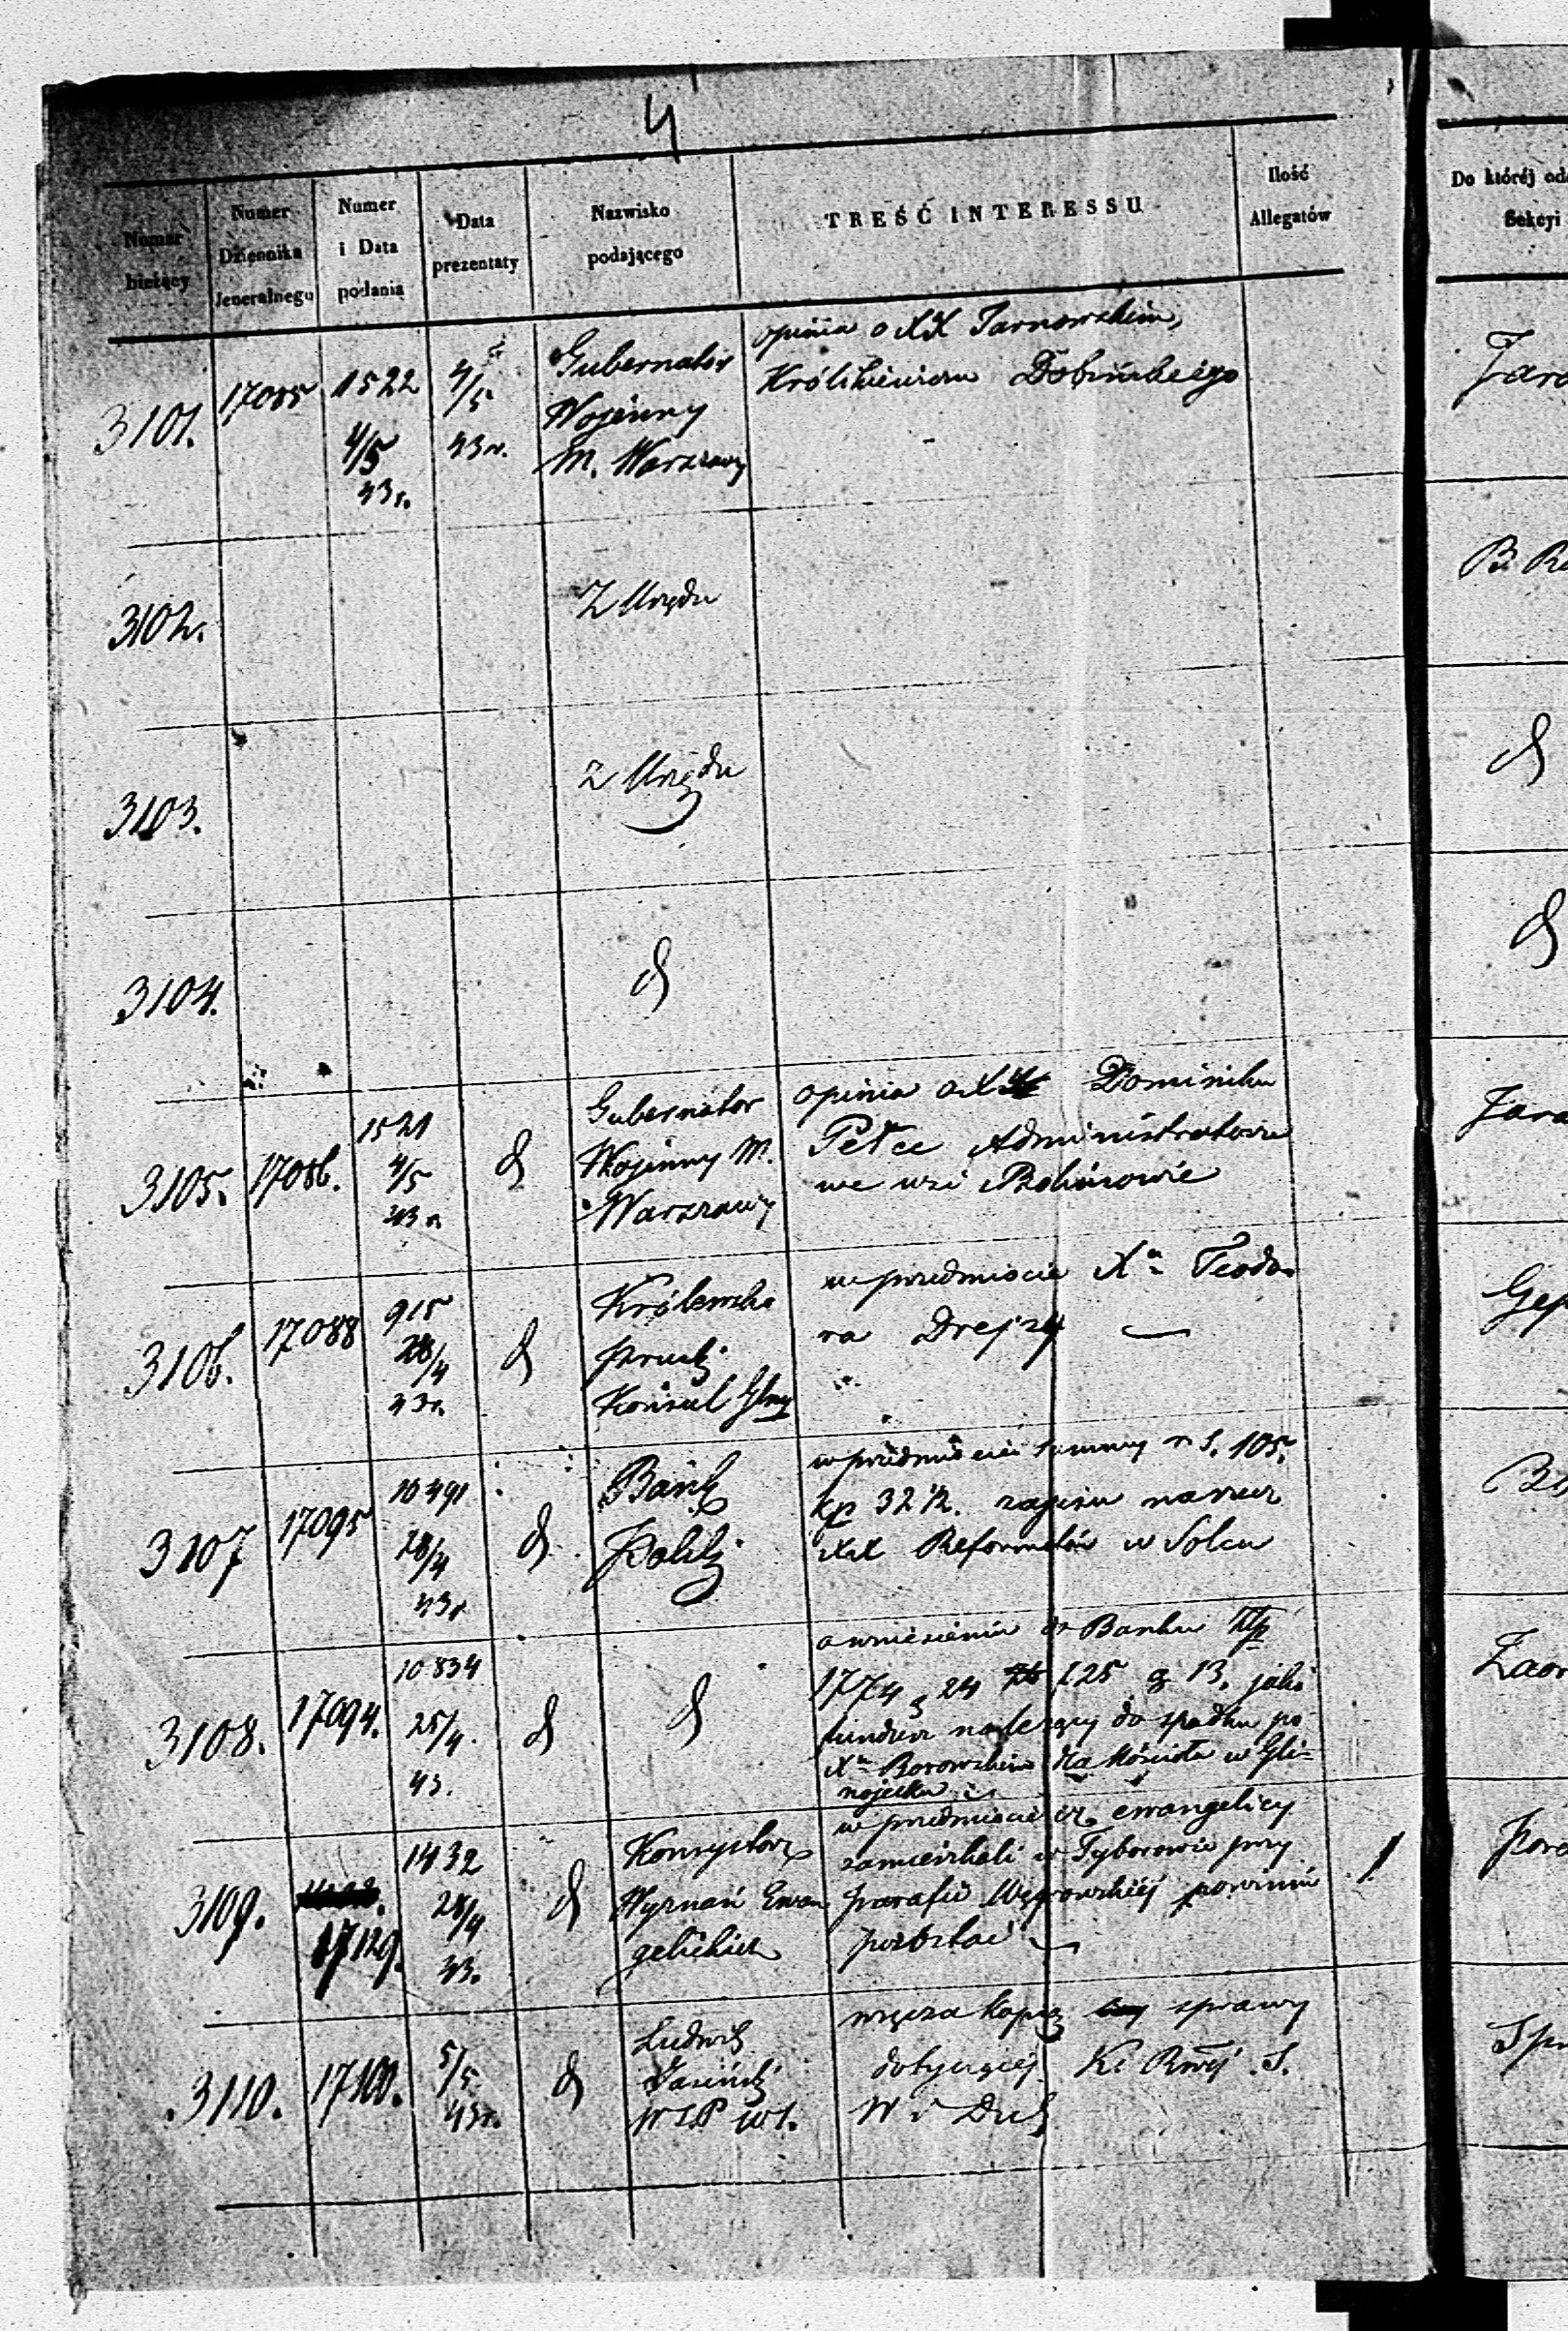 4
Numer bieżący
Numer Dziennika Jeneralnego
Numer i Data podania
Data prezentaty
Nazwisko podającego
TREŚĆ INTERESSU
Ilość Allegatów
Do któréj
Sekcyi
3101.
17085
1522
4/5
43 r.
4/5
43 r.
Gubernator
Wojenny
M. Warszawy
opinia o XX Tarnowskim,
3102.
Z Urzędu
3103.
Z Urzędu
3104.
3105.
17086.
1521
4/5
43 r.
Gubernator
Wojenny M.
Warszawy
opinia o X Dominiku
Pełce Administratorze
we wsi
3106.
17088
915
28/4
43 r.
Królewsko
Pruski
Konsul Glny
w przedmiocie Xa Teodo
ra Drejzy
3107
17095
10491
28/4
43 r
Bank
Polski
w przedmiocie summy r s. 105.
kp 32 1/2. zapisu na rzecz
XX Reformatów w Solcu
3108.
17094.
10834
25/4
43.
o wniesieniu do Banku
1774
fundusz należący do spadku po
Xu Borowskim dla Kościoła w Gli-
nojecku
3109.
17129.
1432
28/4
43.
Konsystorz
Wyznań Ewan
gelickich
w przedmiocie iż ewangelicy
zamieszkali w Tyborowie przy
parafii Węgrowskiéj powinni
pozostać
1.
3110.
17100.
5/5
43 r.
Ludwik
Jasiński
wręcza kopię sprawy
dotyczącéj K. Rząj S.
W i Duch